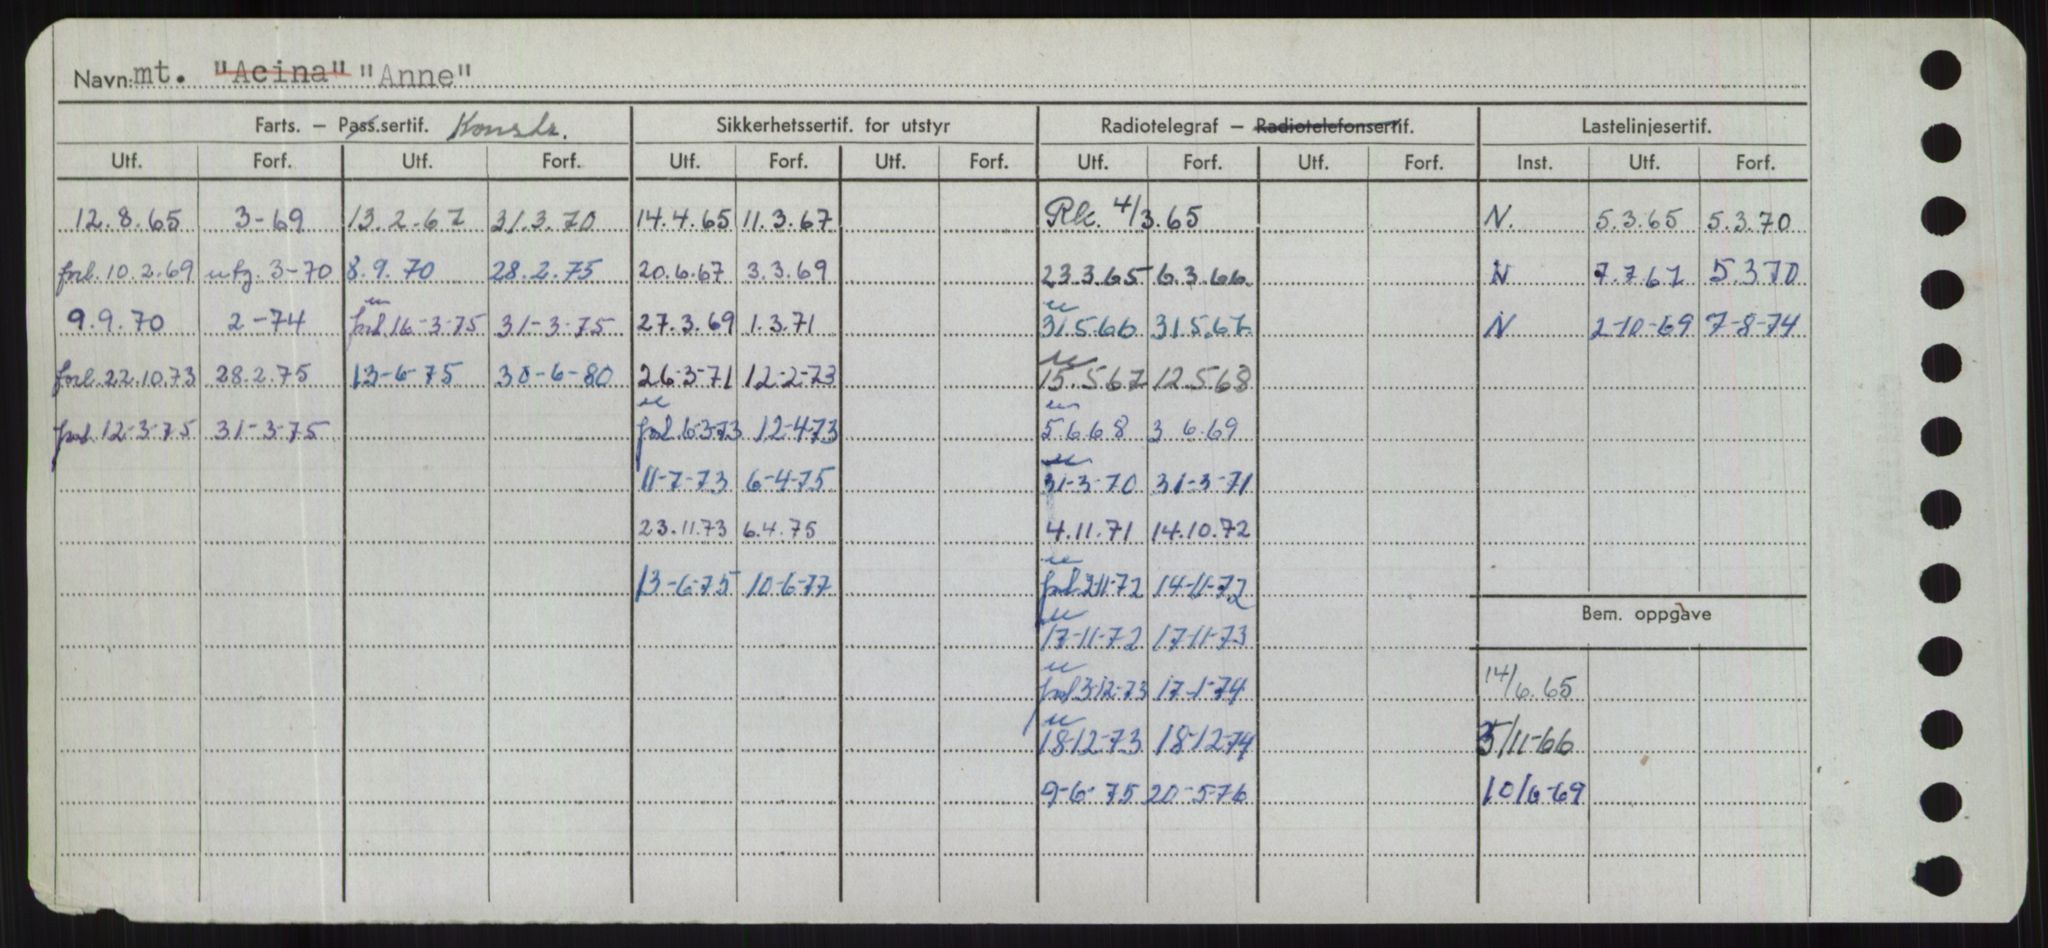 Navn: mt. "Acina" "Anne"
Farts. – Pass.sertif. Konstr. Sikkerhetssertif. for utstyr Radiotelegraf – Radiotelefonsertif. Lastelinjesertif.
Utf. Forf. Utf. Forf. Utf. Forf. Utf. Forf. Utf. Forf. Utf. Forf. Inst. Utf. Forf.
12.8.65 3-69 13.2.67 31.3.70 14.4.65 11.3.67 Rk. 4/3.65 N. 5.3.65 5.3.70
forl. 10.2.69 utg. 3-70 8.9.70 28.2.75 20.6.67 3.3.69 23.3.65 6.3.66 N 7.7.67 5.3.70
9.9.70 2-74 forl. 16-3-75 31-3-75 27.3.69 1.3.71 31.5.66 31.5.67 N 2-10-69 7-8-74
forl. 22.10.73 28.2.75 13-6-75 30-6-80 26-3-71 12-2-73 15.5.67 12.5.68
forl. 12-3-75 31-3-75 forl. 6-3-73 12-4-73 5.6.68 3.6.69
11-7-73 6-4-75 31-3-70 31-3-71
23.11.73 6.4.75 4.11.71 14.10.72
13-6-75 10-6-77 forl. 2-11-72 14-11-72
Bem. oppgave
17-11-72 17-11-73
forl. 3-12-73 17-1-74 14/6.65
18-12-73 18-12-74 5/11-66
9-6-75 20-5-76 10/6-69